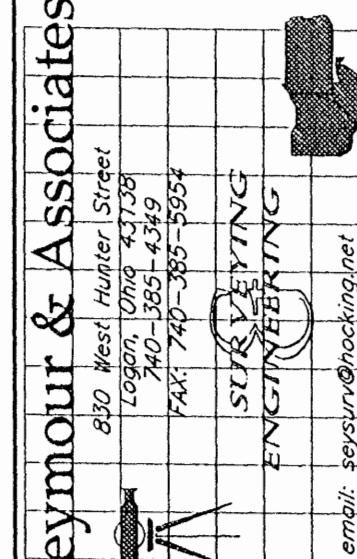 eymour & Associates
830 West Hunter Street
Logan, Ohio 43138
740-385-4349
FAX: 740-385-5954
SURVEYING
&
ENGINEERING
email: seysurv@hocking.net